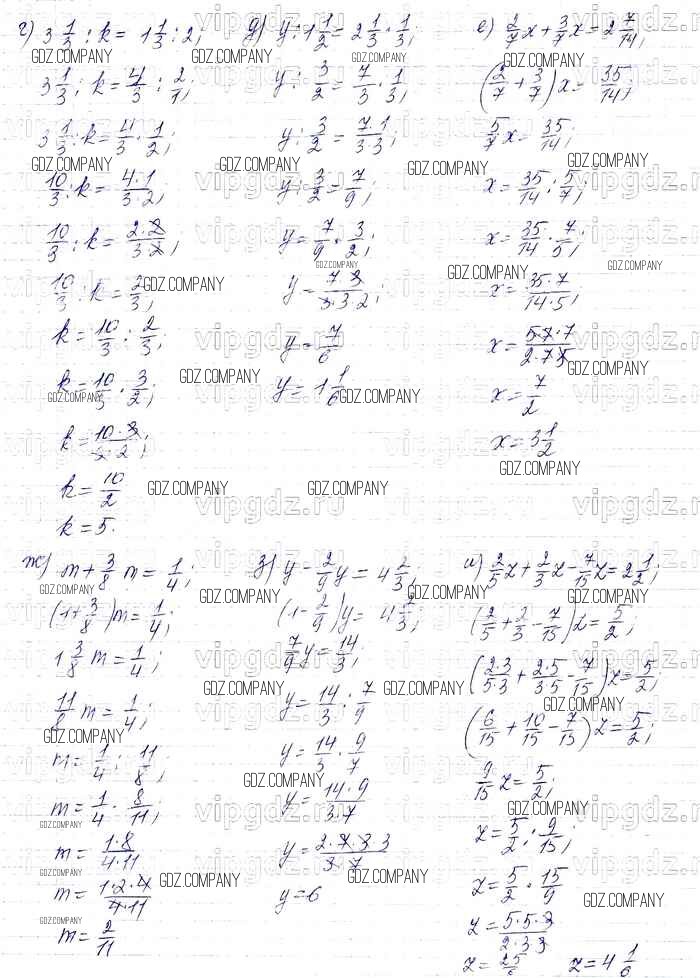 г) 3 1/3 : k = 1 1/3 : 2;
3 1/3 : k = 4/3 : 2/1;
3 1/3 : k = 4/3 · 1/2;
10/3 : k = 4·1/3·2;
10/3 : k = 2·2/3·2;
10/3 : k = 2/3;
k = 10/3 : 2/3;
k = 10/3 · 3/2;
k = 10·3/3·2;
k = 10/2
k = 5.
д) y : 1 1/2 = 2 1/3 · 1/3;
y : 3/2 = 7/3 · 1/3;
y : 3/2 = 7·1/3·3;
y : 3/2 = 7/9;
y = 7/9 · 3/2;
y = 7·3/3·3·2;
y = 7/6
y = 1 1/6
е) 2/7 x + 3/7 x = 2 7/14;
(2/7 + 3/7) x = 35/14;
5/7 x = 35/14;
x = 35/14 : 5/7;
x = 35/14 · 7/5;
x = 35·7/14·5;
x = 5·7·7/2·7·5
x = 7/2
x = 3 1/2
ж) m + 3/8 m = 1/4;
(1 + 3/8) m = 1/4;
1 3/8 m = 1/4;
11/8 m = 1/4;
m = 1/4 : 11/8;
m = 1/4 · 8/11;
m = 1·8/4·11
m = 1·2·4/4·11
m = 2/11
з) y - 2/9 y = 4 2/3;
(1 - 2/9) y = 4 2/3;
7/9 y = 14/3;
y = 14/3 : 7/9
y = 14/3 · 9/7
y = 14·9/3·7
y = 2·7·3·3/3·7
y = 6
и) 2/5 z + 2/3 z - 7/15 z = 2 1/2;
(2/5 + 2/3 - 7/15) z = 5/2;
(2·3/5·3 + 2·5/3·5 - 7/15) z = 5/2;
(6/15 + 10/15 - 7/15) z = 5/2;
9/15 z = 5/2;
z = 5/2 : 9/15;
z = 5/2 · 15/9
z = 5·5·3/2·3·3
z = 25/6 z = 4 1/6
GDZ.COMPANY
vipgdz.ru